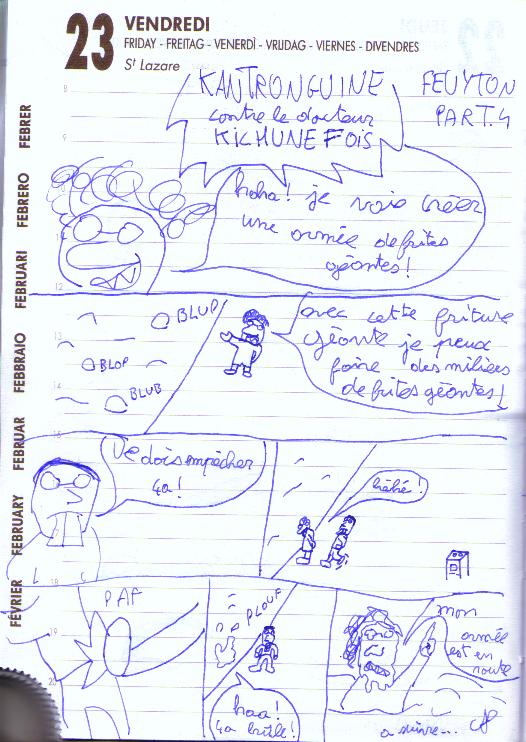 23 VENDREDI
FRIDAY - FREITAG - VENERDÌ - VRIJDAG - VIERNES - DIVENDRES
St Lazare
FÉVRIER FEBRUARY FEBRUAR FEBBRAIO FEBRUARI FEBRERO FEBRER
8
9
12
13
14
18
19
20
KANTRONGUINE
contre le docteur
KICHUNE FOIS
FEUYTON
PART.4
haha! je vais créer
une armée de frites
géantes!
BLUP
BLOP
BLUB
avec cette friture
géante je peux
faire des miliers
de frites géantes!
Je dois empêcher
ça!
héhé!
PAF
PLOUF
haa!
ça brûle!
mon
armée
est en
route
a suivre...